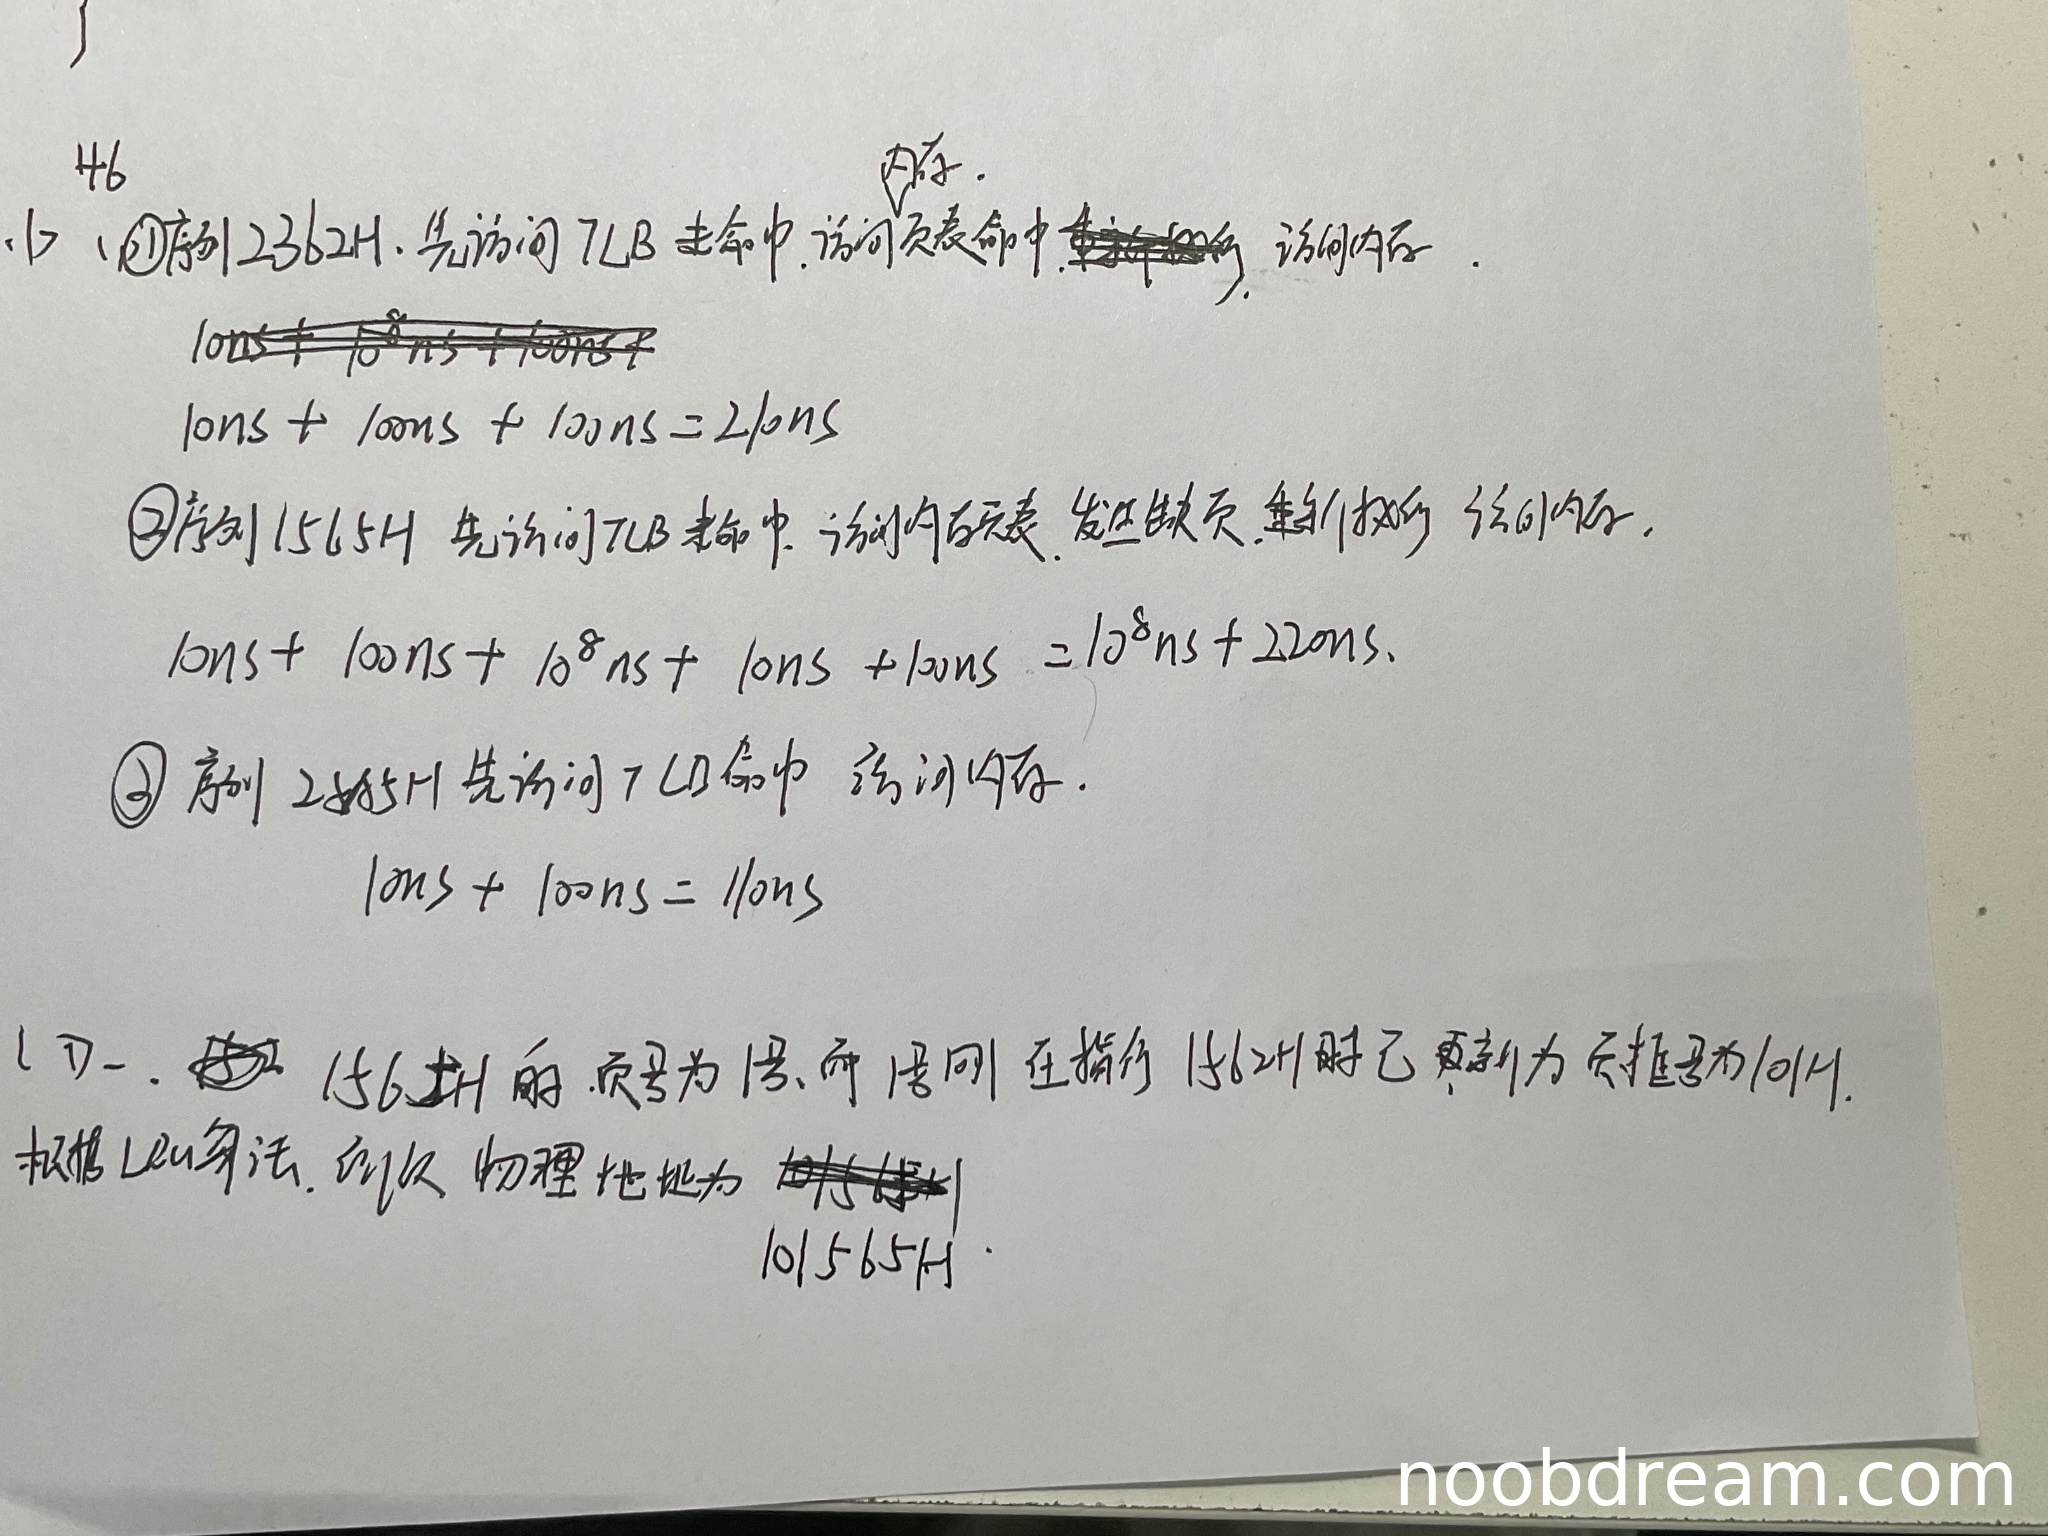 46
(1) ①序列2362H.先访问TLB未命中.访问内存.页表命中. 访问内存.
10ns + 10⁸ns + 100ns +
10ns + 100ns + 100ns = 210ns
②序列1565H 先访问TLB未命中.访问内存页表.发生缺页.重新执行 访问内存.
10ns + 100ns + 10⁸ns + 10ns + 100ns = 10⁸ns + 220ns.
③ 序列 25A5H 先访问TLB命中 访问内存.
10ns + 100ns = 110ns
1565H的 页号为1号、而1号刚在执行1562H时已更新为页框号为101H.
根据LRU算法. 物理地址为
101565H.
noobdream.com